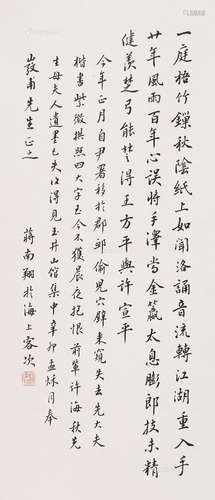 一庭梧竹鏁秋陰紙上如聞洛誦音流轉江湖重入手
廿年風雨百年心誤將手澤當金籯太息膨郎技未精
健羨楚弓能楚得王方平與許宣平
今年正月自尹署移於郡邸偷兒穴鏬來窺失去先大夫
楷書紫薇拱照四大字至今不獲晨夜抱恨前輩許海秋先
生母夫人遺墨已失復得見玉井山館集中辛卯孟秋月奉
甫先生正之
蔣南翔於海上客次